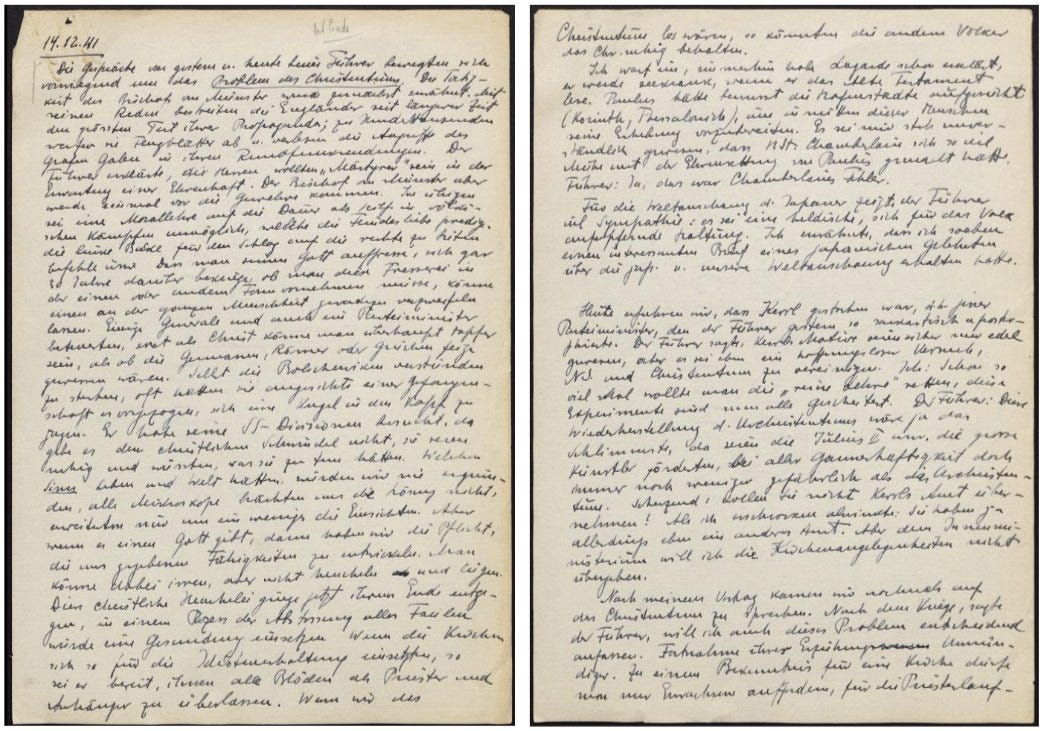 14.12.41
Die Gespräche von gestern u. heute beim Führer bewegten sich
vorwiegend um das Problem des Christentums. Der Tätig-
keit des Bischof von Münster wurde zunächst erwähnt. Mit
seinen Reden bestreiten die Engländer seit längerer Zeit
den grössten Teil ihrer Propaganda; zu Hunderttausenden
werfen sie Flugblätter ab u. verlesen die Angriffe des
Grafen Galen in ihren Rundfunksendungen. Der
Führer erklärte, die Herren wollten „Märtyrer" sein in der
Erwartung einer Ehrenhaft. Der Bischof von Münster aber
werde einmal vor die Gewehre kommen. Im übrigen
sei eine Morallehre auf die Dauer als in völki-
schen Kämpfen unmöglich, welche die Feindesliebe predig
die linke Backe für den Schlag auf die rechte zu bieten
befehle usw. Dass man seinen Gott auffresse, sich gar
30 Jahre darüber bekriege, ob man diese Fresserei in
der einen oder andern Form vornehmen müsse, könne
einen an der ganzen Menschheit geradezu verzweifeln
lassen. Einige Generale und auch ein Parteiminister
behaupten, erst als Christ könne man überhaupt tapfer
sein, als ob die Germanen, Römer oder Griechen feige
gewesen wären. Selbst die Bolschewiken verstünden
zu sterben, oft hätten sie angesichts einer Gefangen-
schaft es vorgezogen, sich eine Kugel in den Kopf zu
jagen. Er habe seine SS-Divisionen besucht, da
gebe es den christlichen Schwindel nicht, sie seien
ruhig und wüssten, was sie zu tun hätten. Welchen
Sinn Leben und Welt hätten, würden wir nie ergrün-
den, alle Mikroskope brächten uns die Lösung nicht,
erweiterten nur um ein weniges die Einsichten. Aber
wenn es einen Gott gibt, dann haben wir die Pflicht,
die uns gegebenen Fähigkeiten zu entwickeln. Man
könne dabei irren, aber nicht heucheln und lügen.
Diese christliche Heuchelei ginge jetzt ihrem Ende entge-
gen, in einem Prozess der Abstossung alles Faulen
würde eine Gesundung einsetzen. Wenn die Kirchen
sich so für die Idiotenerhaltung einsetzten, so
sei er bereit, ihnen alle Blöden als Priester und
Anhänger zu überlassen. Wenn wir des
Christentums los wären, so könnten die andern Völker
das Chr. ruhig behalten.
Ich warf ein, habe Lagarde schon erklärt,
er werde seekrank, wenn er das Alte Testament
lese. Paulus hätte bewusst die Hafenstädte aufgesucht
(Korinth, Thessalonich), um inmitten dieser Menschen
seine Erhebung vorzubereiten. Es sei mir stets unver-
ständlich gewesen, dass H.St. Chamberlain sich so viel
Mühe mit der Ehrenrettung von Paulus gemacht hätte.
Führer: Ja, das war Chamberlains Fehler.
Für die Weltanschauung d. Japaner zeigte der Führer
viel Sympathie: es sei eine heldische, sich für das Volk
aufopfernde Haltung. Ich erwähnte, dass ich soeben
einen interessanten Brief eines japanischen Gelehrten
über die jap. u. unsere Weltanschauung erhalten hätte.
Heute erfuhren wir, dass Kerrl gestorben war, d.h. jener
Parteiminister, den der Führer gestern so sarkastisch apostro-
phierte. Der Führer sagte, Kerrls Motive seien sicher nur edel
gewesen, aber es sei eben ein hoffnungsloser Versuch,
N.S. und Christentum zu vereinigen. Ich: Schon so
viel Mal wollte man die „reine Lehre" retten, diese
Experimente sind nun alle gescheitert. Der Führer: Die
Wiederherstellung d. Urchristentums wäre ja das
Schlimmste, da seien die Julius II usw., die grosse
Künstler förderten, bei aller Gaunerhaftigkeit doch
immer noch weniger gefährlich als das Urchristen-
tum. Scherzend: wollen Sie nicht Kerrls Amt über-
nehmen! Als ich erschrocken abwinkte: Sie haben ja
allerdings eben ein anderes Amt. Aber dem Innenmi-
nisterium will ich die Kirchenangelegenheiten nicht
übergeben.
Nach meinem Vortrag kamen wir nochmals auf
das Christentum zu sprechen. Nach dem Kriege, sagte
der Führer, will ich auch dieses Problem entscheidend
anfassen. Fortnahme ihrer Erziehung Unmün-
diger. Zu einem Bekenntnis für eine Kirche dürfe
man nur Erwachsene auffordern, für die Priesterlauf-